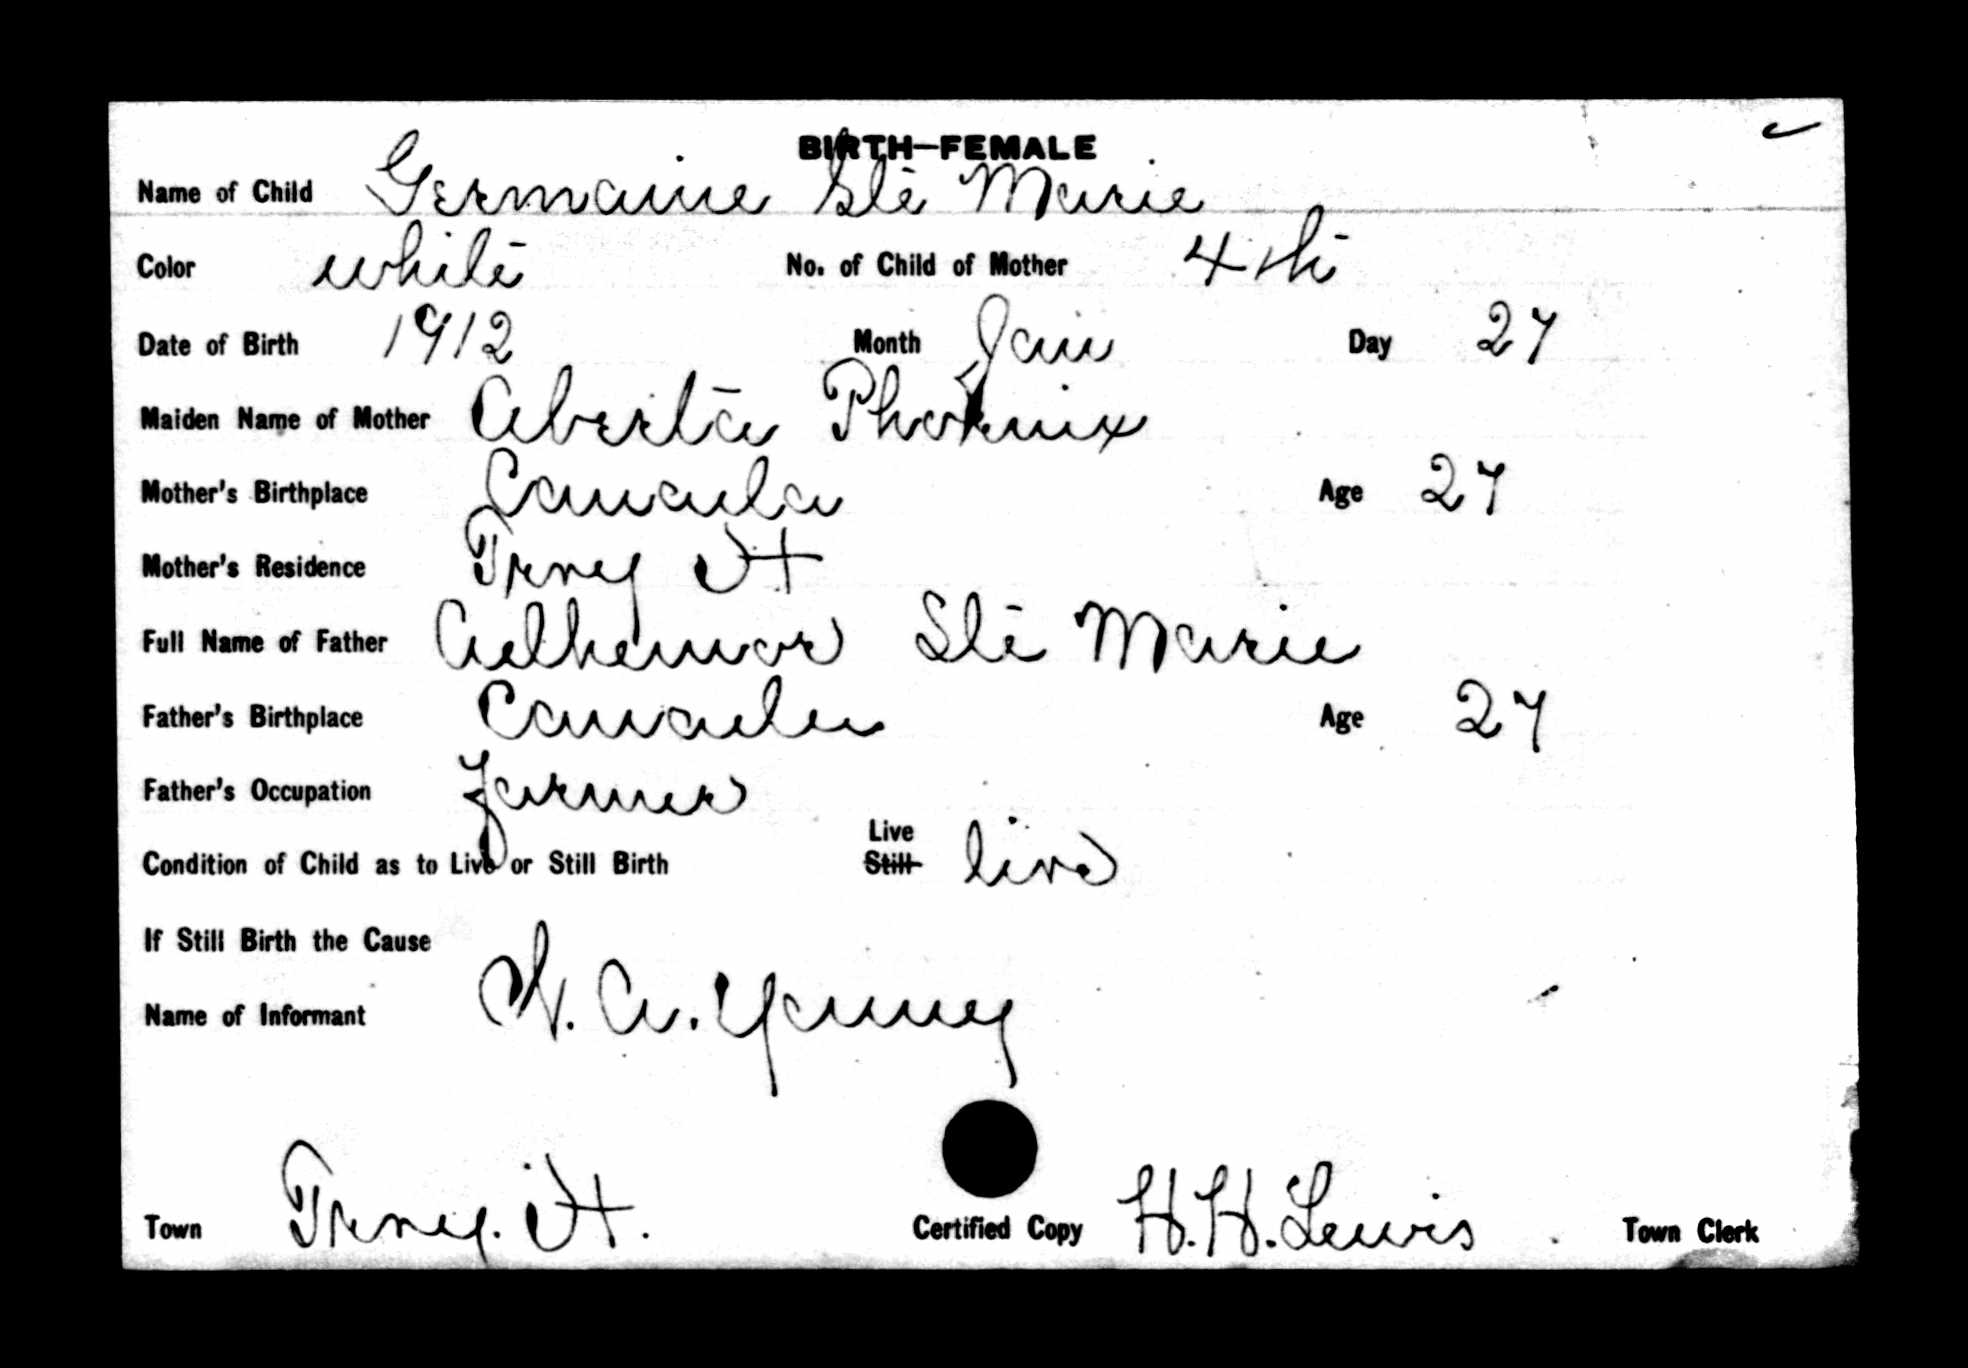 BIRTH—FEMALE
Name of Child Germaine Ste Marie
Color white No. of Child of Mother 4th
Date of Birth 1912 Month Jan Day 27
Maiden Name of Mother Alberta Phoenix
Mother's Birthplace Canada Age 27
Mother's Residence Troy Vt
Full Name of Father Adhemar Ste Marie
Father's Birthplace Canada Age 27
Father's Occupation farmer
Live
Condition of Child as to Live or Still Birth Still live
If Still Birth the Cause
Name of Informant W. A. Young
Town Troy. Vt. Certified Copy H. H. Lewis . Town Clerk